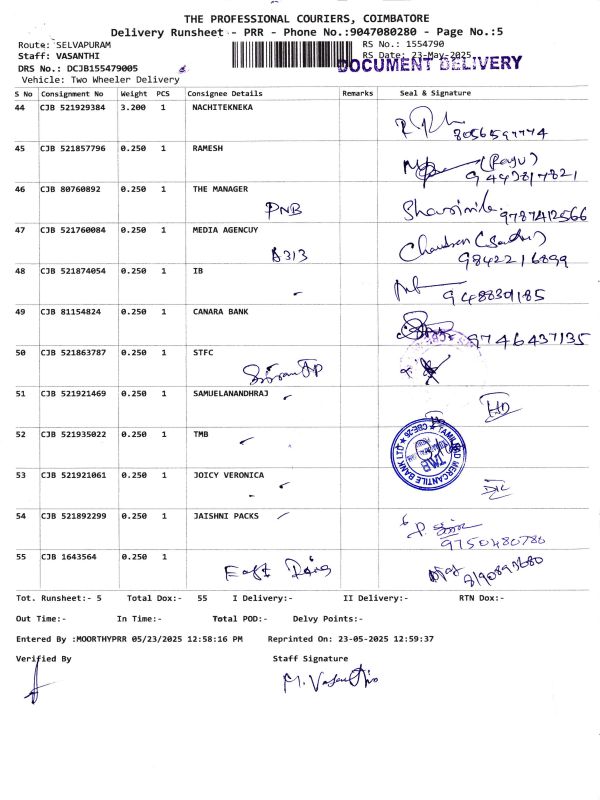 THE PROFESSIONAL COURIERS, COIMBATORE
Delivery Runsheet - PRR - Phone No.:9047080280 - Page No.:5
Route: SELVAPURAM
RS No.: 1554790
Staff: VASANTHI
RS Date: 23-May-2025
DRS No.: DCJB155479005
DOCUMENT DELIVERY
Vehicle: Two Wheeler Delivery
S No Consignment No Weight PCS Consignee Details Remarks Seal & Signature
44 CJB 521929384 3.200 1 NACHITEKNEKA
8056597774
45 CJB 521857796 0.250 1 RAMESH
(Raju)
9443817821
46 CJB 80760892 0.250 1 THE MANAGER
PNB
9787412566
47 CJB 521760084 0.250 1 MEDIA AGENCUY
A313
9842216899
48 CJB 521874054 0.250 1 IB
49 CJB 81154824 0.250 1 CANARA BANK
9746437135
50 CJB 521863787 0.250 1 STFC
51 CJB 521921469 0.250 1 SAMUELANANDHRAJ
HD
52 CJB 521935022 0.250 1 TMB
TMB
53 CJB 521921061 0.250 1 JOICY VERONICA
54 CJB 521892299 0.250 1 JAISHNI PACKS
9750480780
55 CJB 1643564 0.250 1
Tot. Runsheet:- 5 Total Dox:- 55 I Delivery:- II Delivery:- RTN Dox:-
Out Time:- In Time:- Total POD:- Delvy Points:-
Entered By :MOORTHYPRR 05/23/2025 12:58:16 PM Reprinted On: 23-05-2025 12:59:37
Verified By Staff Signature